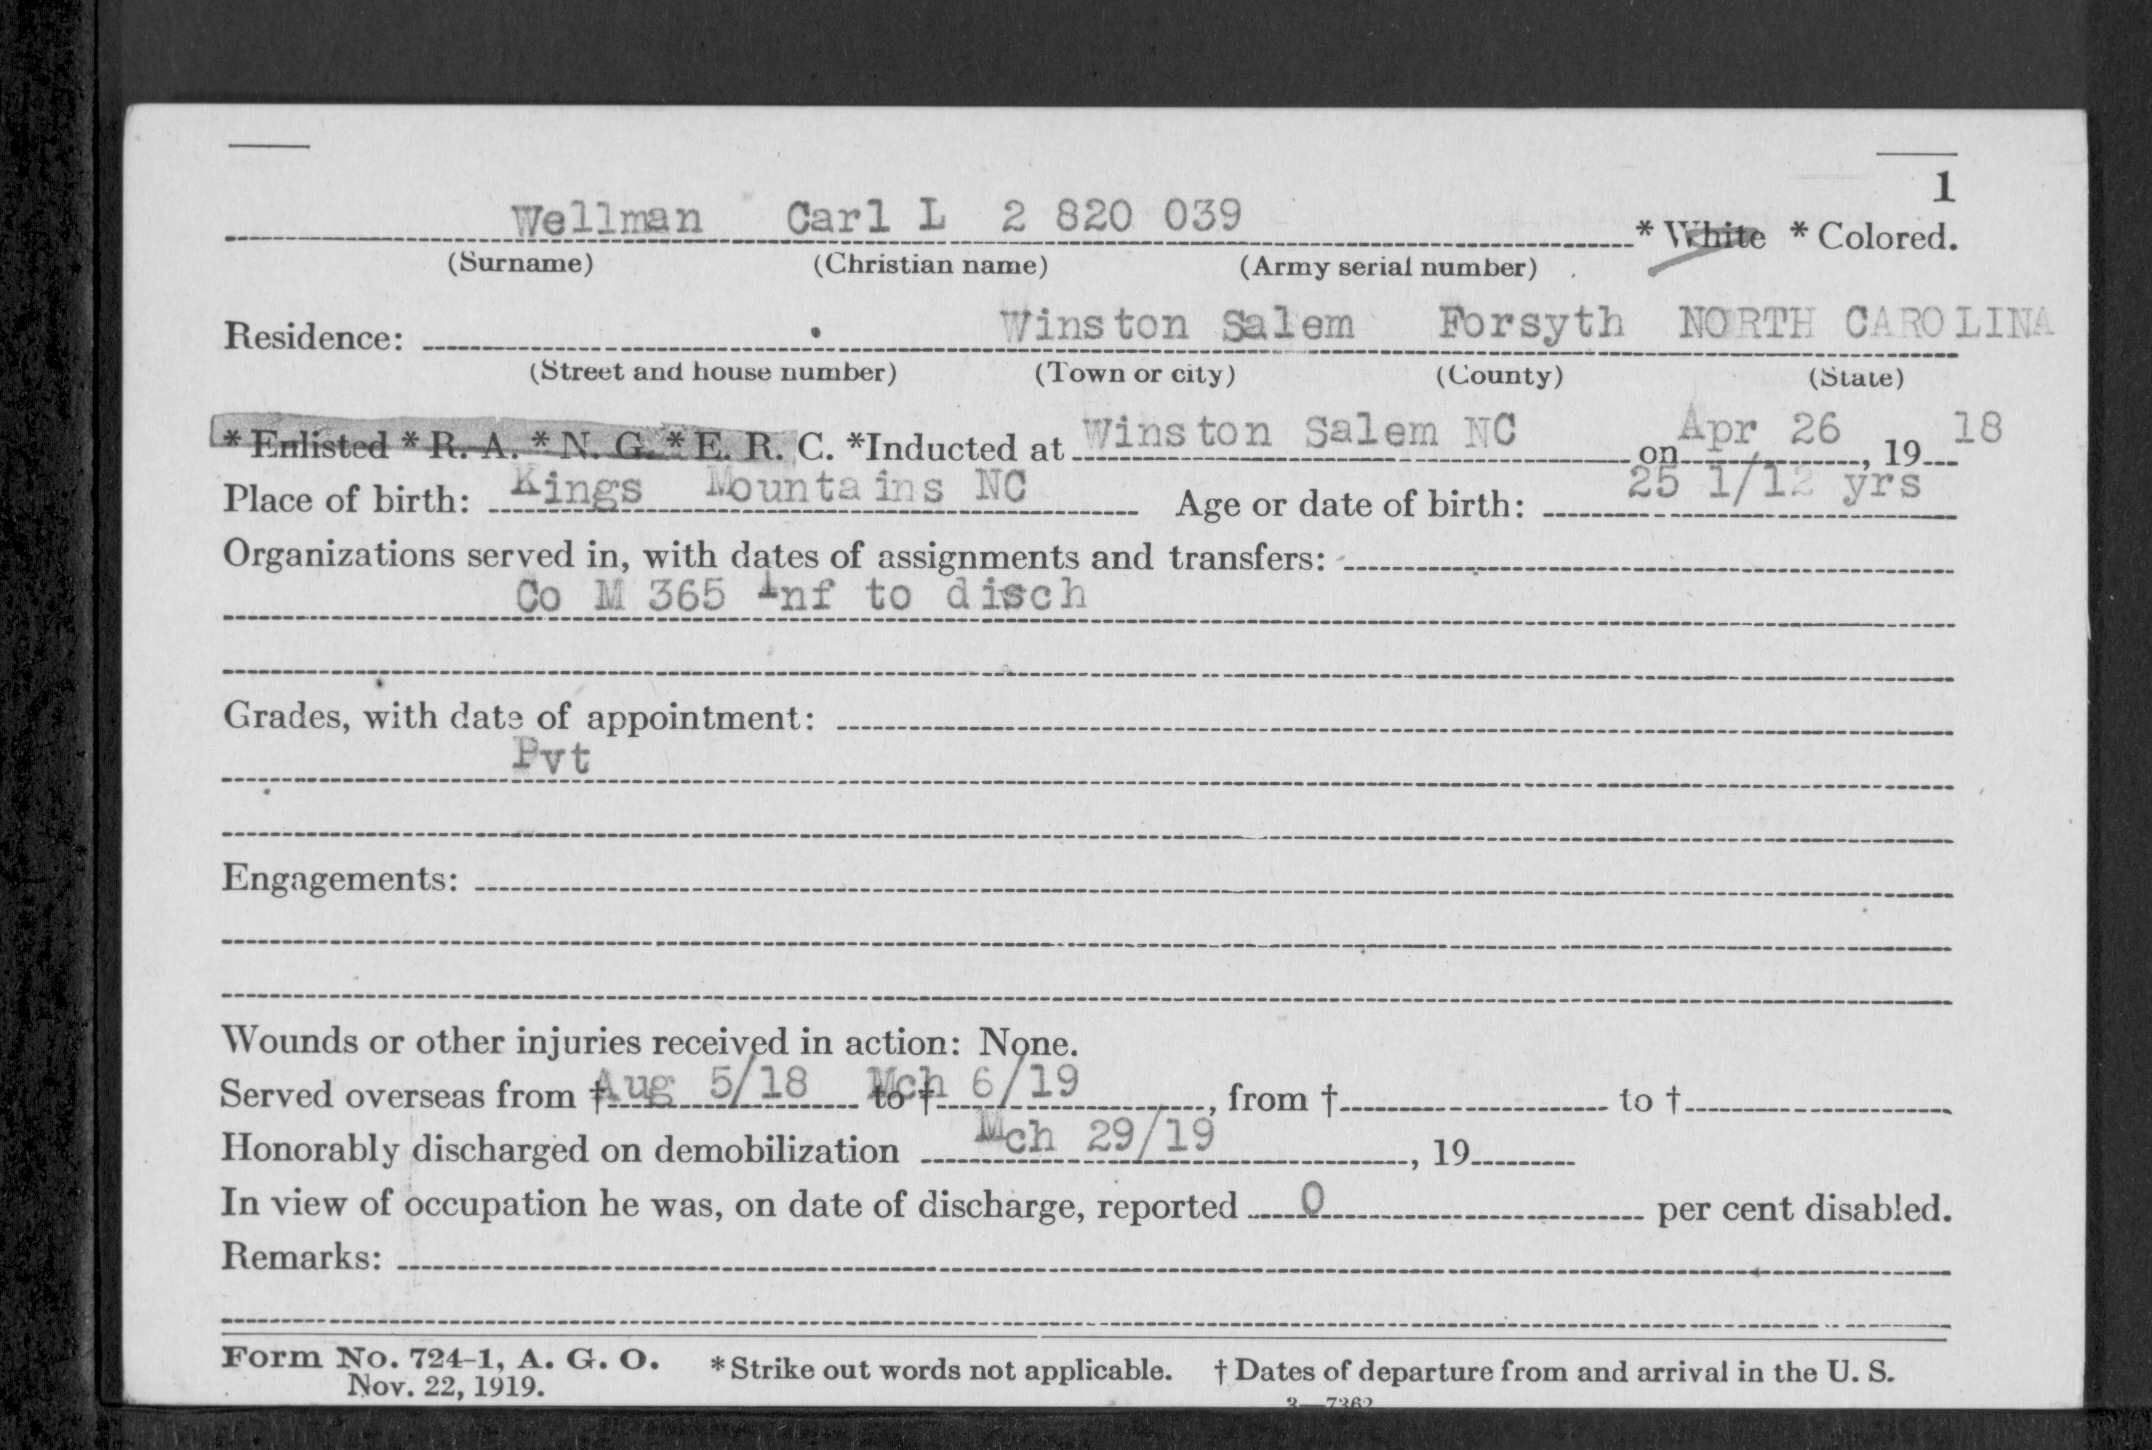 1
Wellman Carl L 2 820 039 * White * Colored.
(Surname) (Christian name) (Army serial number)
Residence: Winston Salem Forsyth NORTH CAROLINA
(Street and house number) (Town or city) (County) (State)
* Enlisted * R. A. * N. G. * E. R. C. *Inducted at Winston Salem NC on Apr 26, 19 18
Place of birth: Kings Mountains NC Age or date of birth: 25 1/12 yrs
Organizations served in, with dates of assignments and transfers:
Co M 365 Inf to disch
Grades, with date of appointment:
Pvt
Engagements:
Wounds or other injuries received in action: None.
Served overseas from † Aug 5/18 to † Mch 6/19, from † to †
Honorably discharged on demobilization Mch 29/19, 19
In view of occupation he was, on date of discharge, reported 0 per cent disabled.
Remarks:
Form No. 724-1, A. G. O. * Strike out words not applicable. † Dates of departure from and arrival in the U. S.
Nov. 22, 1919.
3—7362